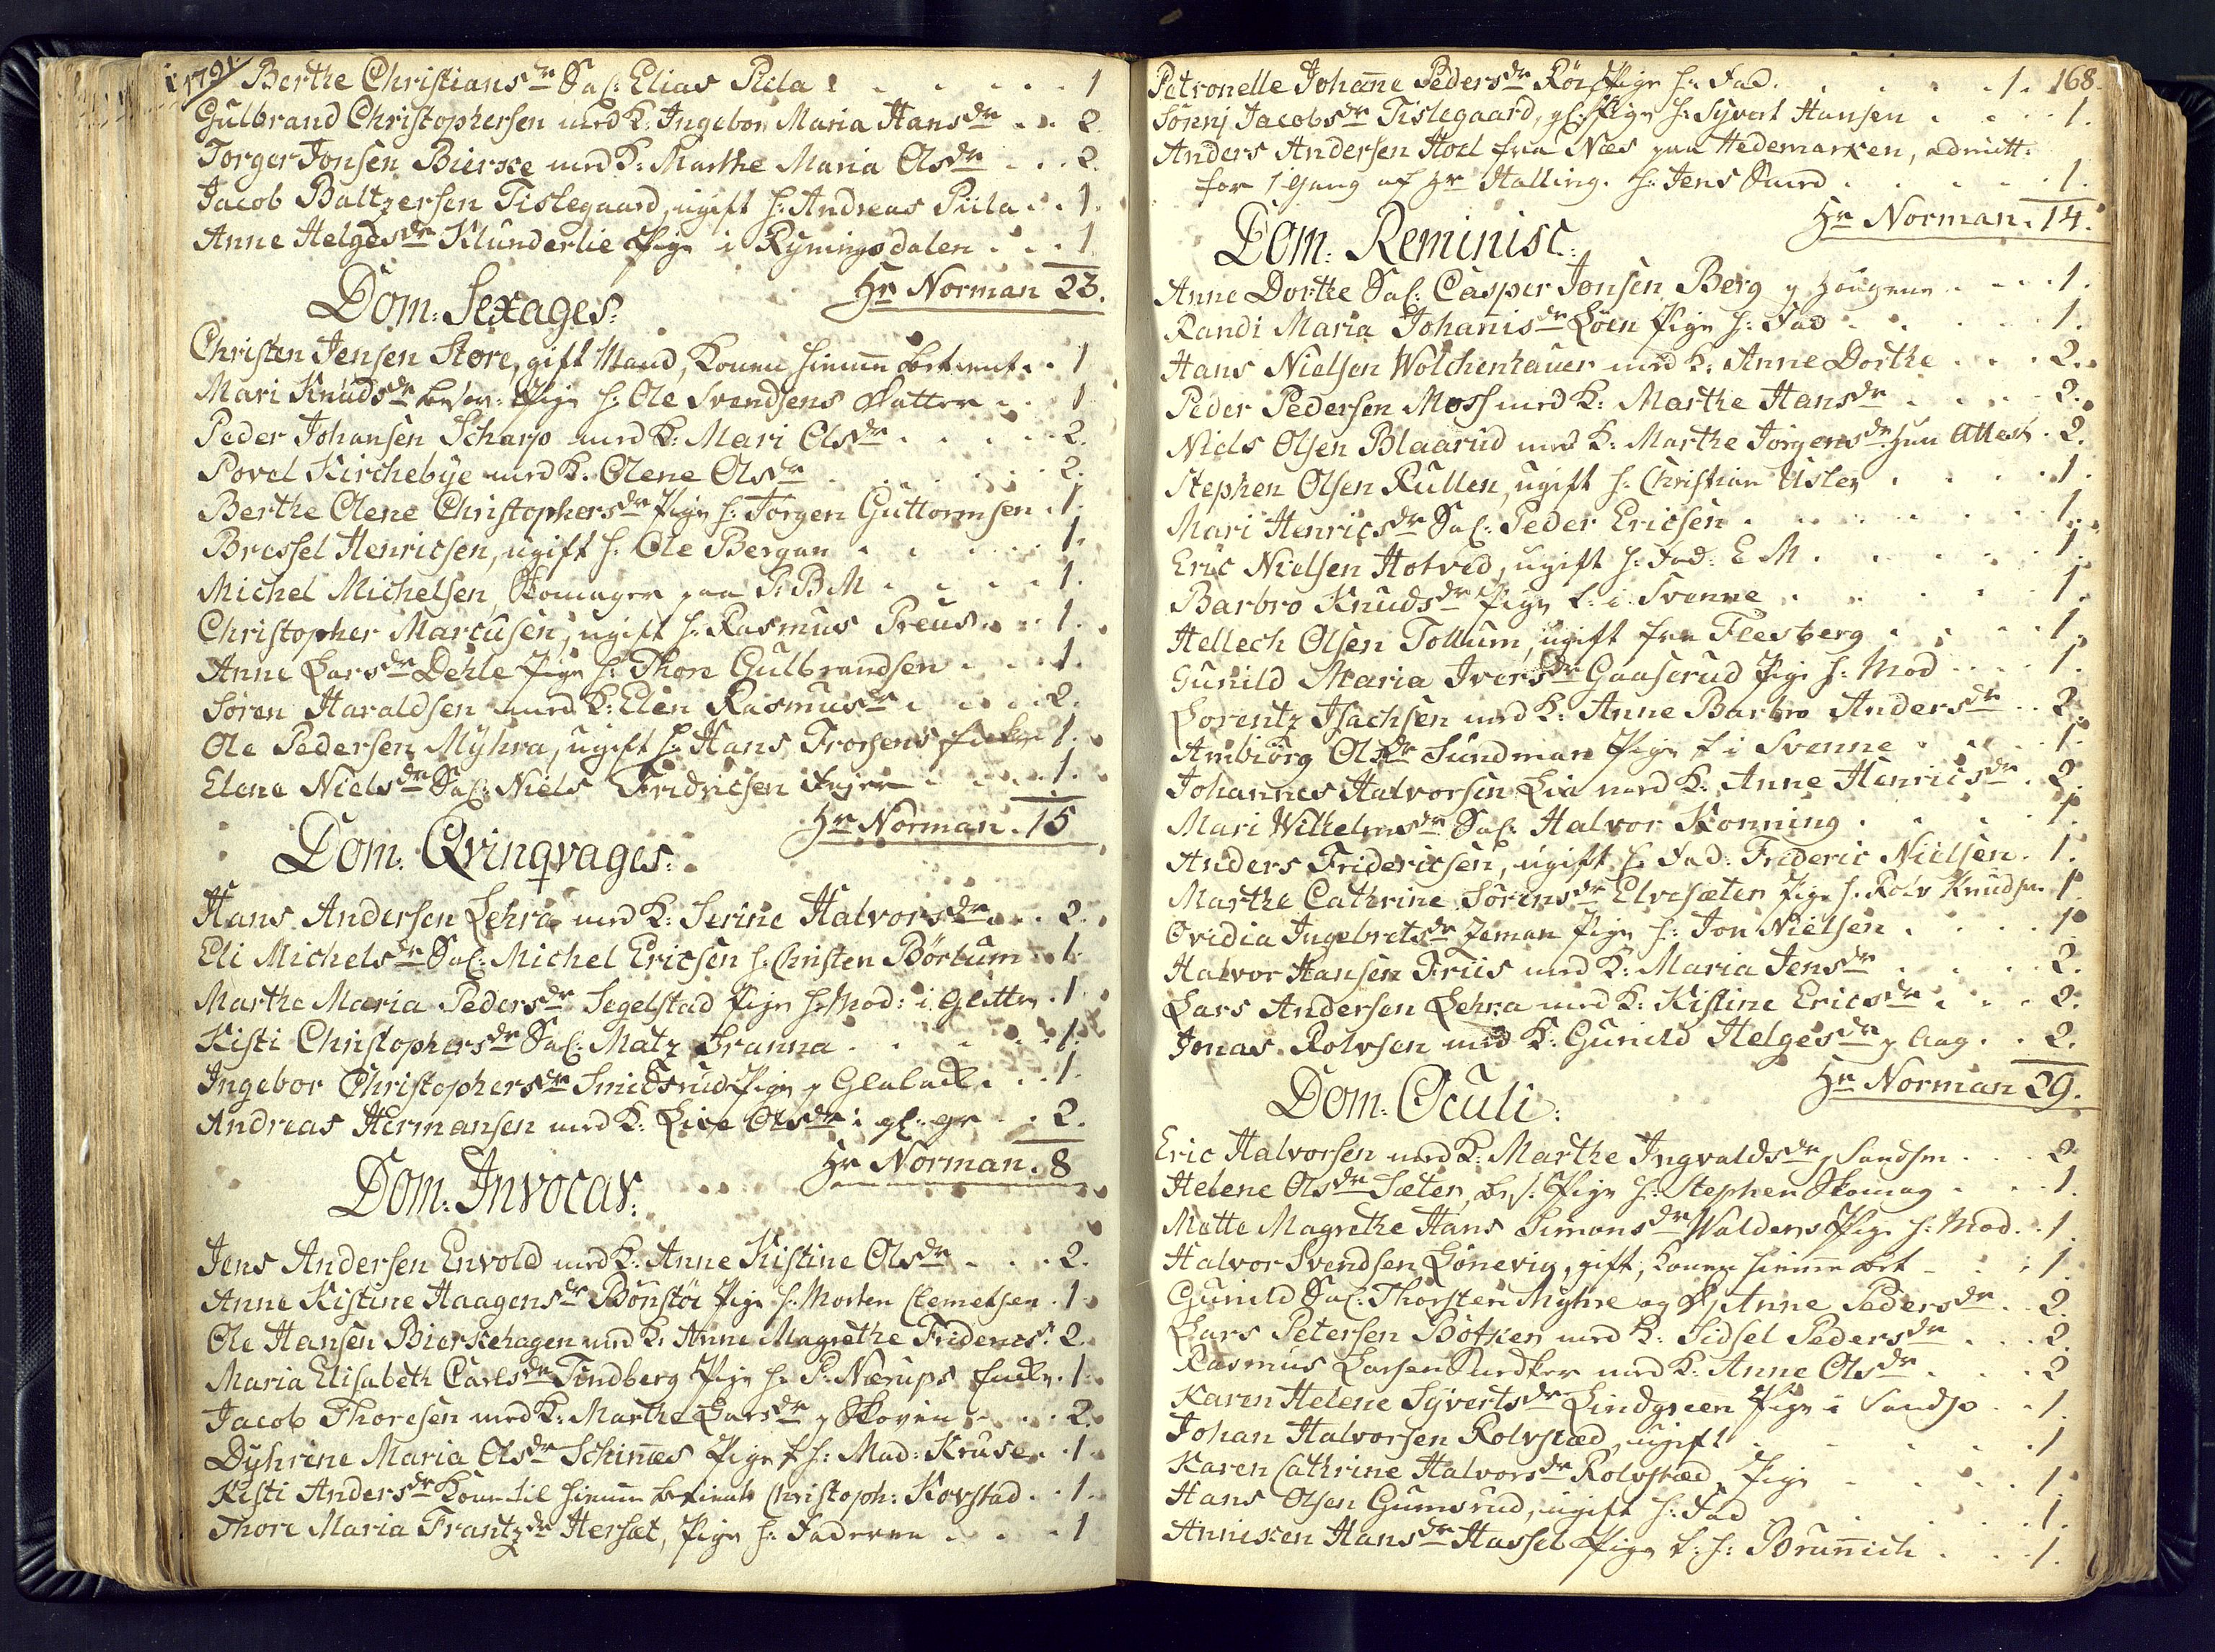 1791.
Berthe Christiansdr Sal: Elias Piila . . . . 1
Gulbrand Christophersen med K: Ingebor Maria Hansdr . . 2.
Torger Jonsen Bierke med K: Marthe Maria Olsdr . . 2.
Jacob Baltzersen Tislegaard, ugift h: Andreas Piila . . 1.
Anne Helgesdr Klunderlie Pige i Rÿningsdalen . . 1
Hr Norman 23.
Dom: Sexages:
Christen Jensen Store, gift Mand, Konen hiemme . . 1
Mari Knudsdr Pige h: Ole Svendsens Datter . . 1
Peder Johansen Scharp med K: Mari Olsdr . . . 2.
Povel Kirchebÿe med K. Olene Olsdr . . . 2.
Berthe Olene Christophersdr Pige h: Torgen Guttormsen . 1.
Bressel Henricsen, ugift h. Ole Bergan . . . 1.
Michel Michelsen, Skomager paa P: B M . . . 1.
Christopher Marcusen, ugift h. Rasmus Preus . . 1.
Anne Larsdr Dehle Pige h: Thore Gulbrandsen . . 1.
Søren Haraldsen med K: Elen Rasmusdr . . . 2.
Ole Pedersen Mÿhra, ugift h: Hans Trochens Enke 1.
Elene Nielsdr Sal: Niels Fridricsen . . . 1.
Hr Norman . 15
Dom: Qvinqvages:
Hans Andersen Lehra med K: Serine Halvorsdr . . 2.
Eli Michelsdr Sal: Michel Ericsen h. Christen Börtum . 1.
Marthe Maria Pedersdr Segelstad Pige h: Mod: i Glitter . 1
Kisti Christophersdr Sal: Matz Tranna . . . 1.
Ingebor Christophersdr Smidsrud Pige . . 1.
Andreas Hermansen med K. Live Olsdr i gl: . . 2.
Hr Norman . 8
Dom: Invocav:
Jens Andersen Envold med K: Anne Kistine Olsdr . . 2.
Anne Kistine Haagensdr Bönstöe Pige h: Morten Clemetsen . 1
Ole Hansen Bierkehagen med K: Anne Magrethe Fridericsd . 2.
Maria Elisabeth Carlsdr Tindberg Pige h: P: Nærups Enke . 1.
Jacob Thoresen med K: Marthe Larsdr p Skoven . . 2.
Dÿhrine Maria Olsdr Schinæs Pige t h: Mad: Kruse . . 1
Kisti Andersdr Kone til hiemme Christoph: Korstad . . 1.
Thore Maria Frantzdr Hersæt, Pige h: Faderen . . . 1
168.
Petronelle Johañe Pedersdr Röi Pige h: Fad. . . . 1.
Sörenj Jacobsdr Tislegaard, gl: Pige h: Sÿvert Hansen . . 1.
Anders Andersen Hoel fra Næs paa Hedemarken, admitt:
for 1 Gang af Hr Halling. h: Jens Smed . . . 1.
Hr Norman . 14.
Dom: Reminisc:
Anne Dorthe Sal: Casper Jonsen Berg p Hougene . . . 1.
Randi Maria Johannisdr Löen Pige h: Fad . . . 1.
Hans Nielsen Wolchenhauer med K: Anne Dorthe . . . 2.
Peder Pedersen Moss med K: Marthe Hansdr . . . 2.
Niels Olsen Blaarud med K: Marthe Jörgensdr hun Attest . 2.
Stephen Olsen Rullen, ugift h: Christian Usler . . . 1.
Mari Henricsdr Sal: Peder Ericsen . . . 1.
Eric Nielsen Hotved, ugift h: Fad: E M . . . 1.
Barbro Knudsdr Pige t: i Svenne . . . 1.
Hellech Olsen Tollum, ugift fra Flesberg . . . 1.
Gunild Maria Iversdr Gaaserud Pige h: Mod . . . 1.
Lorentz Isachsen med K: Anne Barbro Andersdr . . 2.
Ambiörg Olsdr Sundman Pige t i Svenne . . . 1.
Johannes Halvorsen Lia med K: Anne Henricsdr . 2.
Mari Wilhelmsdr Sal: Halvor Konning . . . 1.
Anders Fridericsen, ugift h Fad: Frideric Nielsen . 1.
Marthe Cathrine Sörensdr Elvesæter Pige h: Rolv Knudsen 1.
Ovidia Ingebretsdr Zeman Pige h: Jon Nielsen . . . 1.
Halvor Hansen Friis med K: Maria Jensdr . . . 2.
Lars Andersen Lehra med K: Kistine Ericsdr . . . 2.
Jonas Rolvsen med K: Gunild Helgesdr p Aag . . 2.
Hr Norman 29.
Dom: Oculi:
Eric Halvorsen med K: Marthe Ingvaldsdr p Sandsv . . 2
Helene Olsdr Sæter, Pige h: Stephen Skomag . . . 1.
Mette Magrethe Hans Simonsdr Walders Pige h: Mod . . 1.
Halvor Svendsen Lönevig, gift, Konen hiemme . . 1
Gunild Sal: Thorsten Mÿhre og D: Anne Pedersdr . . 2.
Lars Petersen Bötker med K: Sidsel Pedersdr . . . 2.
Rasmus Larsen med K: Anne Olsdr . . . 2
Karen Helene Sÿvertsdr Lindgreen Pige i Sandsv . . 1.
Johan Halvorsen Rolvstæd, ugift . . . 1
Karen Cathrine Halvorsdr Rolvstæd Pige . . . 1.
Hans Olsen Gumsrud, ugift h: Fad . . . 1.
Anniken Hansdr Hassel Pige t: h: Bruñich . . . 1.